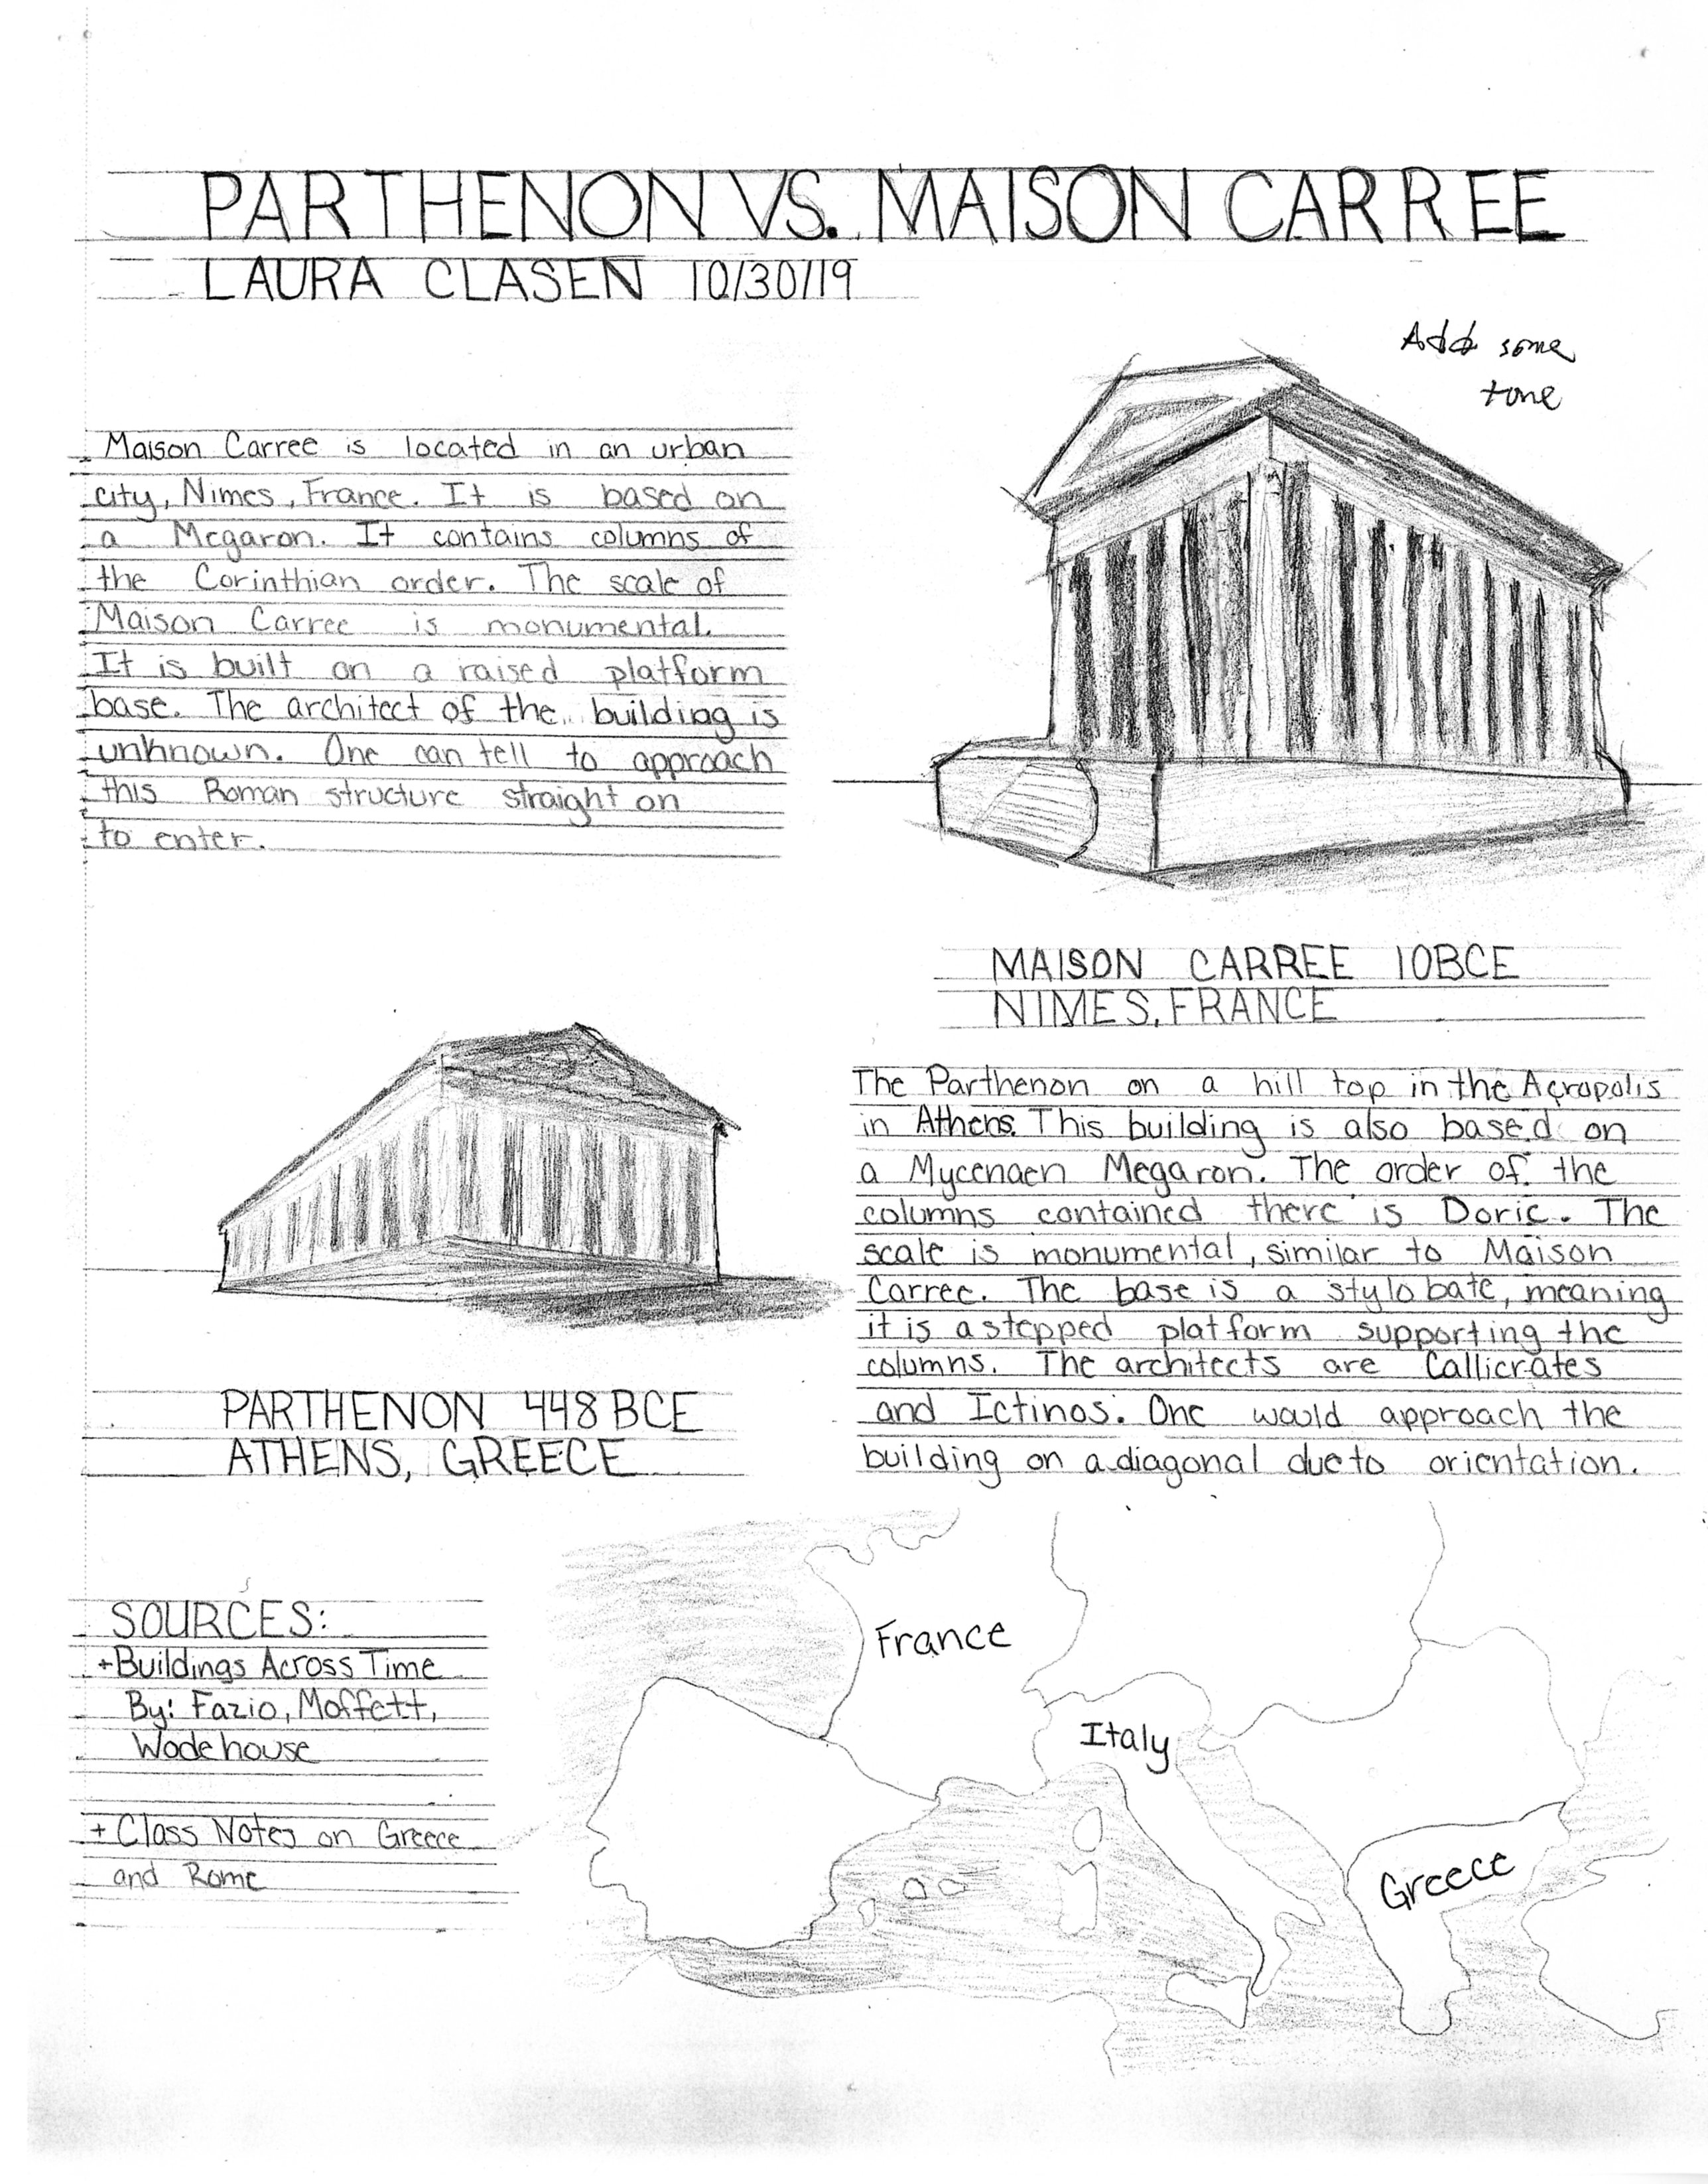 PARTHENON VS. MAISON CARREE
LAURA CLASEN 10/30/19
Add some
tone
Maison Carree is located in an urban
city, Nimes, France. It is based on
a Megaron. It contains columns of
the Corinthian order. The scale of
Maison Carree is monumental.
It is built on a raised platform
base. The architect of the building is
unknown. One can tell to approach
this Roman structure straight on
to enter.
MAISON CARREE 10BCE
NIMES, FRANCE
The Parthenon on a hill top in the Acropolis
in Athens. This building is also based on
a Mycenaen Megaron. The order of the
columns contained there is Doric. The
scale is monumental, similar to Maison
Carree. The base is a stylobate, meaning
it is a stepped platform supporting the
columns. The architects are Callicrates
and Ictinos. One would approach the
building on a diagonal due to orientation.
PARTHENON 448 BCE
ATHENS, GREECE
SOURCES:
+Buildings Across Time
By: Fazio, Moffett,
Wodehouse
+ Class Notes on Greece
and Rome
France
Italy
Greece